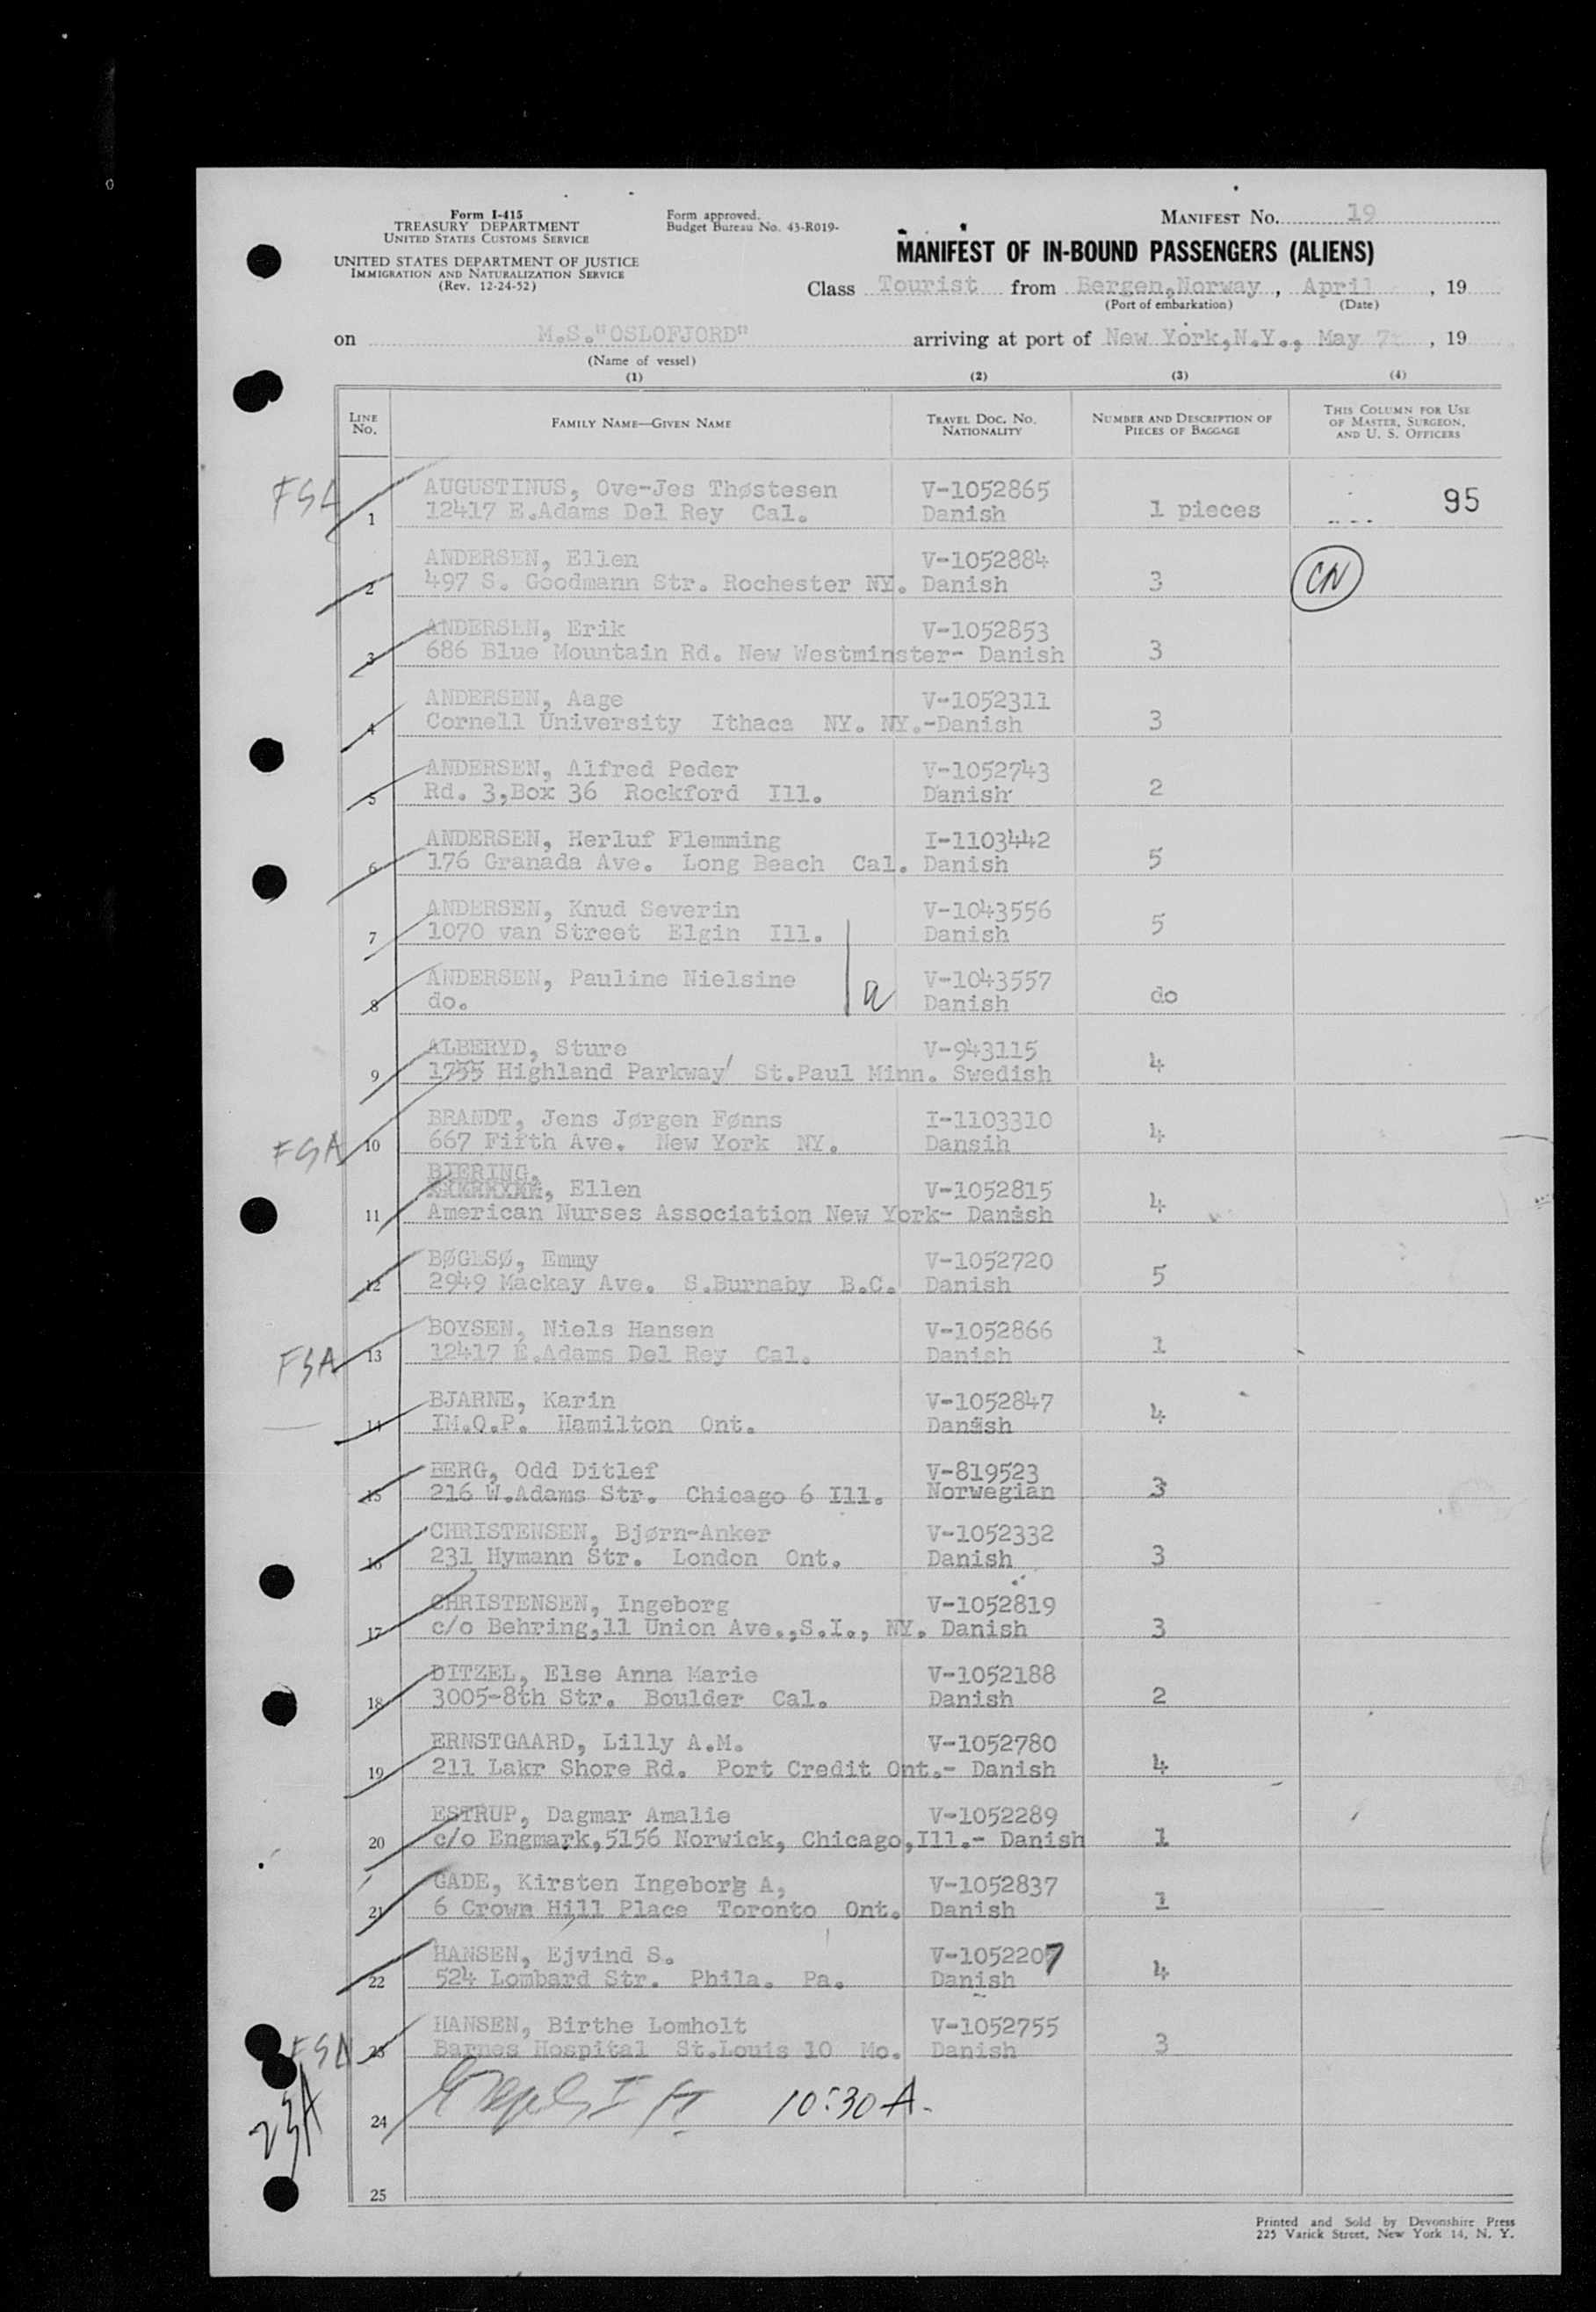 Form I-415
TREASURY DEPARTMENT
UNITED STATES CUSTOMS SERVICE
UNITED STATES DEPARTMENT OF JUSTICE
IMMIGRATION AND NATURALIZATION SERVICE
(Rev. 12-24-52)
Form approved.
Budget Bureau No. 43-R019-
MANIFEST No. 19
MANIFEST OF IN-BOUND PASSENGERS (ALIENS)
Class Tourist from Bergen,Norway , April , 19
(Port of embarkation) (Date)
on M.S."OSLOFJORD" arriving at port of New York,N.Y., May 7 , 19
(Name of vessel)
(1) (2) (3) (4)
LINE No. FAMILY NAME—GIVEN NAME TRAVEL DOC. NO. NATIONALITY NUMBER AND DESCRIPTION OF PIECES OF BAGGAGE THIS COLUMN FOR USE OF MASTER, SURGEON, AND U. S. OFFICERS
FSA AUGUSTINUS, Ove-Jes Thøstesen V-1052865
1 12417 E.Adams Del Rey Cal. Danish 1 pieces 95
ANDERSEN, Ellen V-1052884
2 497 S. Goodmann Str. Rochester NY. Danish 3 CN
ANDERSEN, Erik V-1052853
3 686 Blue Mountain Rd. New Westminster- Danish 3
ANDERSEN, Aage V-1052311
4 Cornell University Ithaca NY. NY.-Danish 3
ANDERSEN, Alfred Peder V-1052743
5 Rd. 3,Box 36 Rockford Ill. Danish 2
ANDERSEN, Herluf Flemming I-1103442
6 176 Granada Ave. Long Beach Cal. Danish 5
ANDERSEN, Knud Severin V-1043556
7 1070 van Street Elgin Ill. Danish 5
ANDERSEN, Pauline Nielsine V-1043557
8 do. a Danish do
ALBERYD, Sture V-943115
9 1755 Highland Parkway St.Paul Minn. Swedish 4
BRANDT, Jens Jørgen Fønns I-1103310
FSA 10 667 Fifth Ave. New York NY. Dansih 4
BJERING,
, Ellen V-1052815
11 American Nurses Association New York- Danish 4
BØGESØ, Emmy V-1052720
12 2949 Mackay Ave. S.Burnaby B.C. Danish 5
BOYSEN, Niels Hansen V-1052866
FSA 13 12417 E.Adams Del Rey Cal. Danish 1
BJARNE, Karin V-1052847
14 IM.O.P. Hamilton Ont. Danish 4
BERG, Odd Ditlef V-819523
15 216 W.Adams Str. Chicago 6 Ill. Norwegian 3
CHRISTENSEN, Bjørn-Anker V-1052332
16 231 Hymann Str. London Ont. Danish 3
CHRISTENSEN, Ingeborg V-1052819
17 c/o Behring,11 Union Ave.,S.I., NY. Danish 3
DITZEL, Else Anna Marie V-1052188
18 3005-8th Str. Boulder Cal. Danish 2
ERNSTGAARD, Lilly A.M. V-1052780
19 211 Lakr Shore Rd. Port Credit Ont.- Danish 4
ESTRUP, Dagmar Amalie V-1052289
20 c/o Engmark,5156 Norwick, Chicago,Ill.- Danish 1
GADE, Kirsten Ingeborg A, V-1052837
21 6 Crown Hill Place Toronto Ont. Danish 1
HANSEN, Ejvind S. V-1052207
22 524 Lombard Str. Phila. Pa. Danish 4
HANSEN, Birthe Lomholt V-1052755
FSA 23 Barnes Hospital St.Louis 10 Mo. Danish 3
10:30 A.
24
23A
25
Printed and Sold by Devonshire Press
225 Varick Street, New York 14, N. Y.